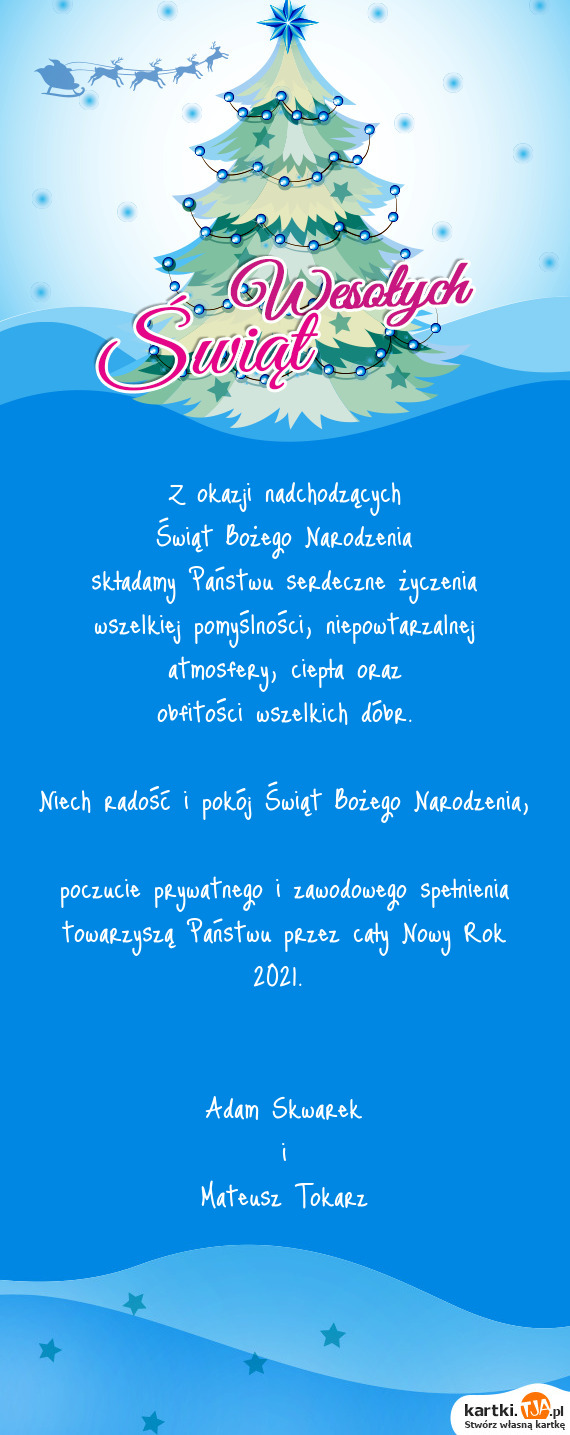 Wesołych
Świąt
Z okazji nadchodzących
Świąt Bożego Narodzenia
składamy Państwu serdeczne życzenia
wszelkiej pomyślności, niepowtarzalnej
atmosfery, ciepła oraz
obfitości wszelkich dóbr.
Niech radość i pokój Świąt Bożego Narodzenia,
poczucie prywatnego i zawodowego spełnienia
towarzyszą Państwu przez cały Nowy Rok
2021.
Adam Skwarek
i
Mateusz Tokarz
kartki.TJA.pl
Stwórz własną kartkę